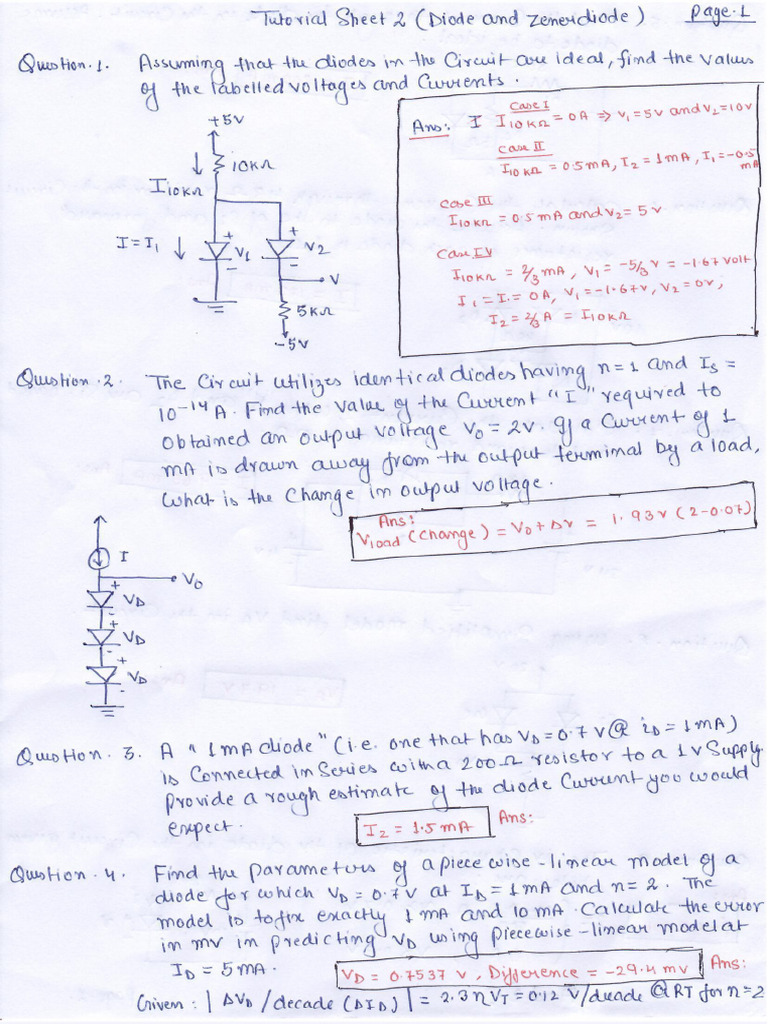 Tutorial Sheet 2 (Diode and zenerdiode) Page.1
Question.1. Assuming that the diodes in the Circuit are ideal, find the values
of the labelled voltages and Currents.
+5V
10KΩ
I10KΩ
I = I1
V1
+
-
V2
+
-
V
5KΩ
-5V
Ans: I
Case I
I10KΩ = 0A ⇒ V1 = 5V and V2 = 10V
Case II
I10KΩ = 0.5mA, I2 = 1mA, I1 = -0.5
mA
Case III
I10KΩ = 0.5mA and V2 = 5V
Case IV
I10KΩ = 2/3 mA, V1 = -5/3 V = -1.67 volt
I1 = I = 0A, V1 = -1.67V, V2 = 0V,
I2 = 2/3 A = I10KΩ
Question.2. The Circuit utilizes identical diodes having n=1 and IS =
10⁻¹⁴ A. Find the value of the Current "I" required to
obtained an output voltage V0 = 2V. If a Current of 1
mA is drawn away from the output terminal by a load,
what is the Change in output voltage.
Ans:
Vload (Change) = V0 + ΔV = 1.93V (2-0.07)
I
V0
+
VD
-
+
VD
-
+
VD
-
Question.3. A "1mA diode" (i.e. one that has VD = 0.7V @ iD = 1mA)
is Connected in Series with a 200Ω resistor to a 1V Supply.
Provide a rough estimate of the diode Current you would
expect.
I2 = 1.5mA Ans:
Question.4. Find the parameters of a piecewise-linear model of a
diode for which VD = 0.7V at ID = 1mA and n=2. The
model is to fix exactly 1mA and 10mA. Calculate the error
in mV in predicting VD using piecewise-linear model at
ID = 5mA.
VD = 0.7537 V, Difference = -29.4 mV Ans:
Given: | ΔVD / decade (ΔID) | = 2.3nVT = 0.12 V/decade @ RT for n=2